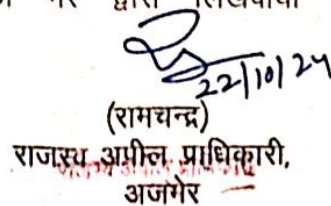 द्वारा लिखवाया
22/10/24
(रामचन्द्र)
राजस्व अपील प्राधिकारी,
अजमेर